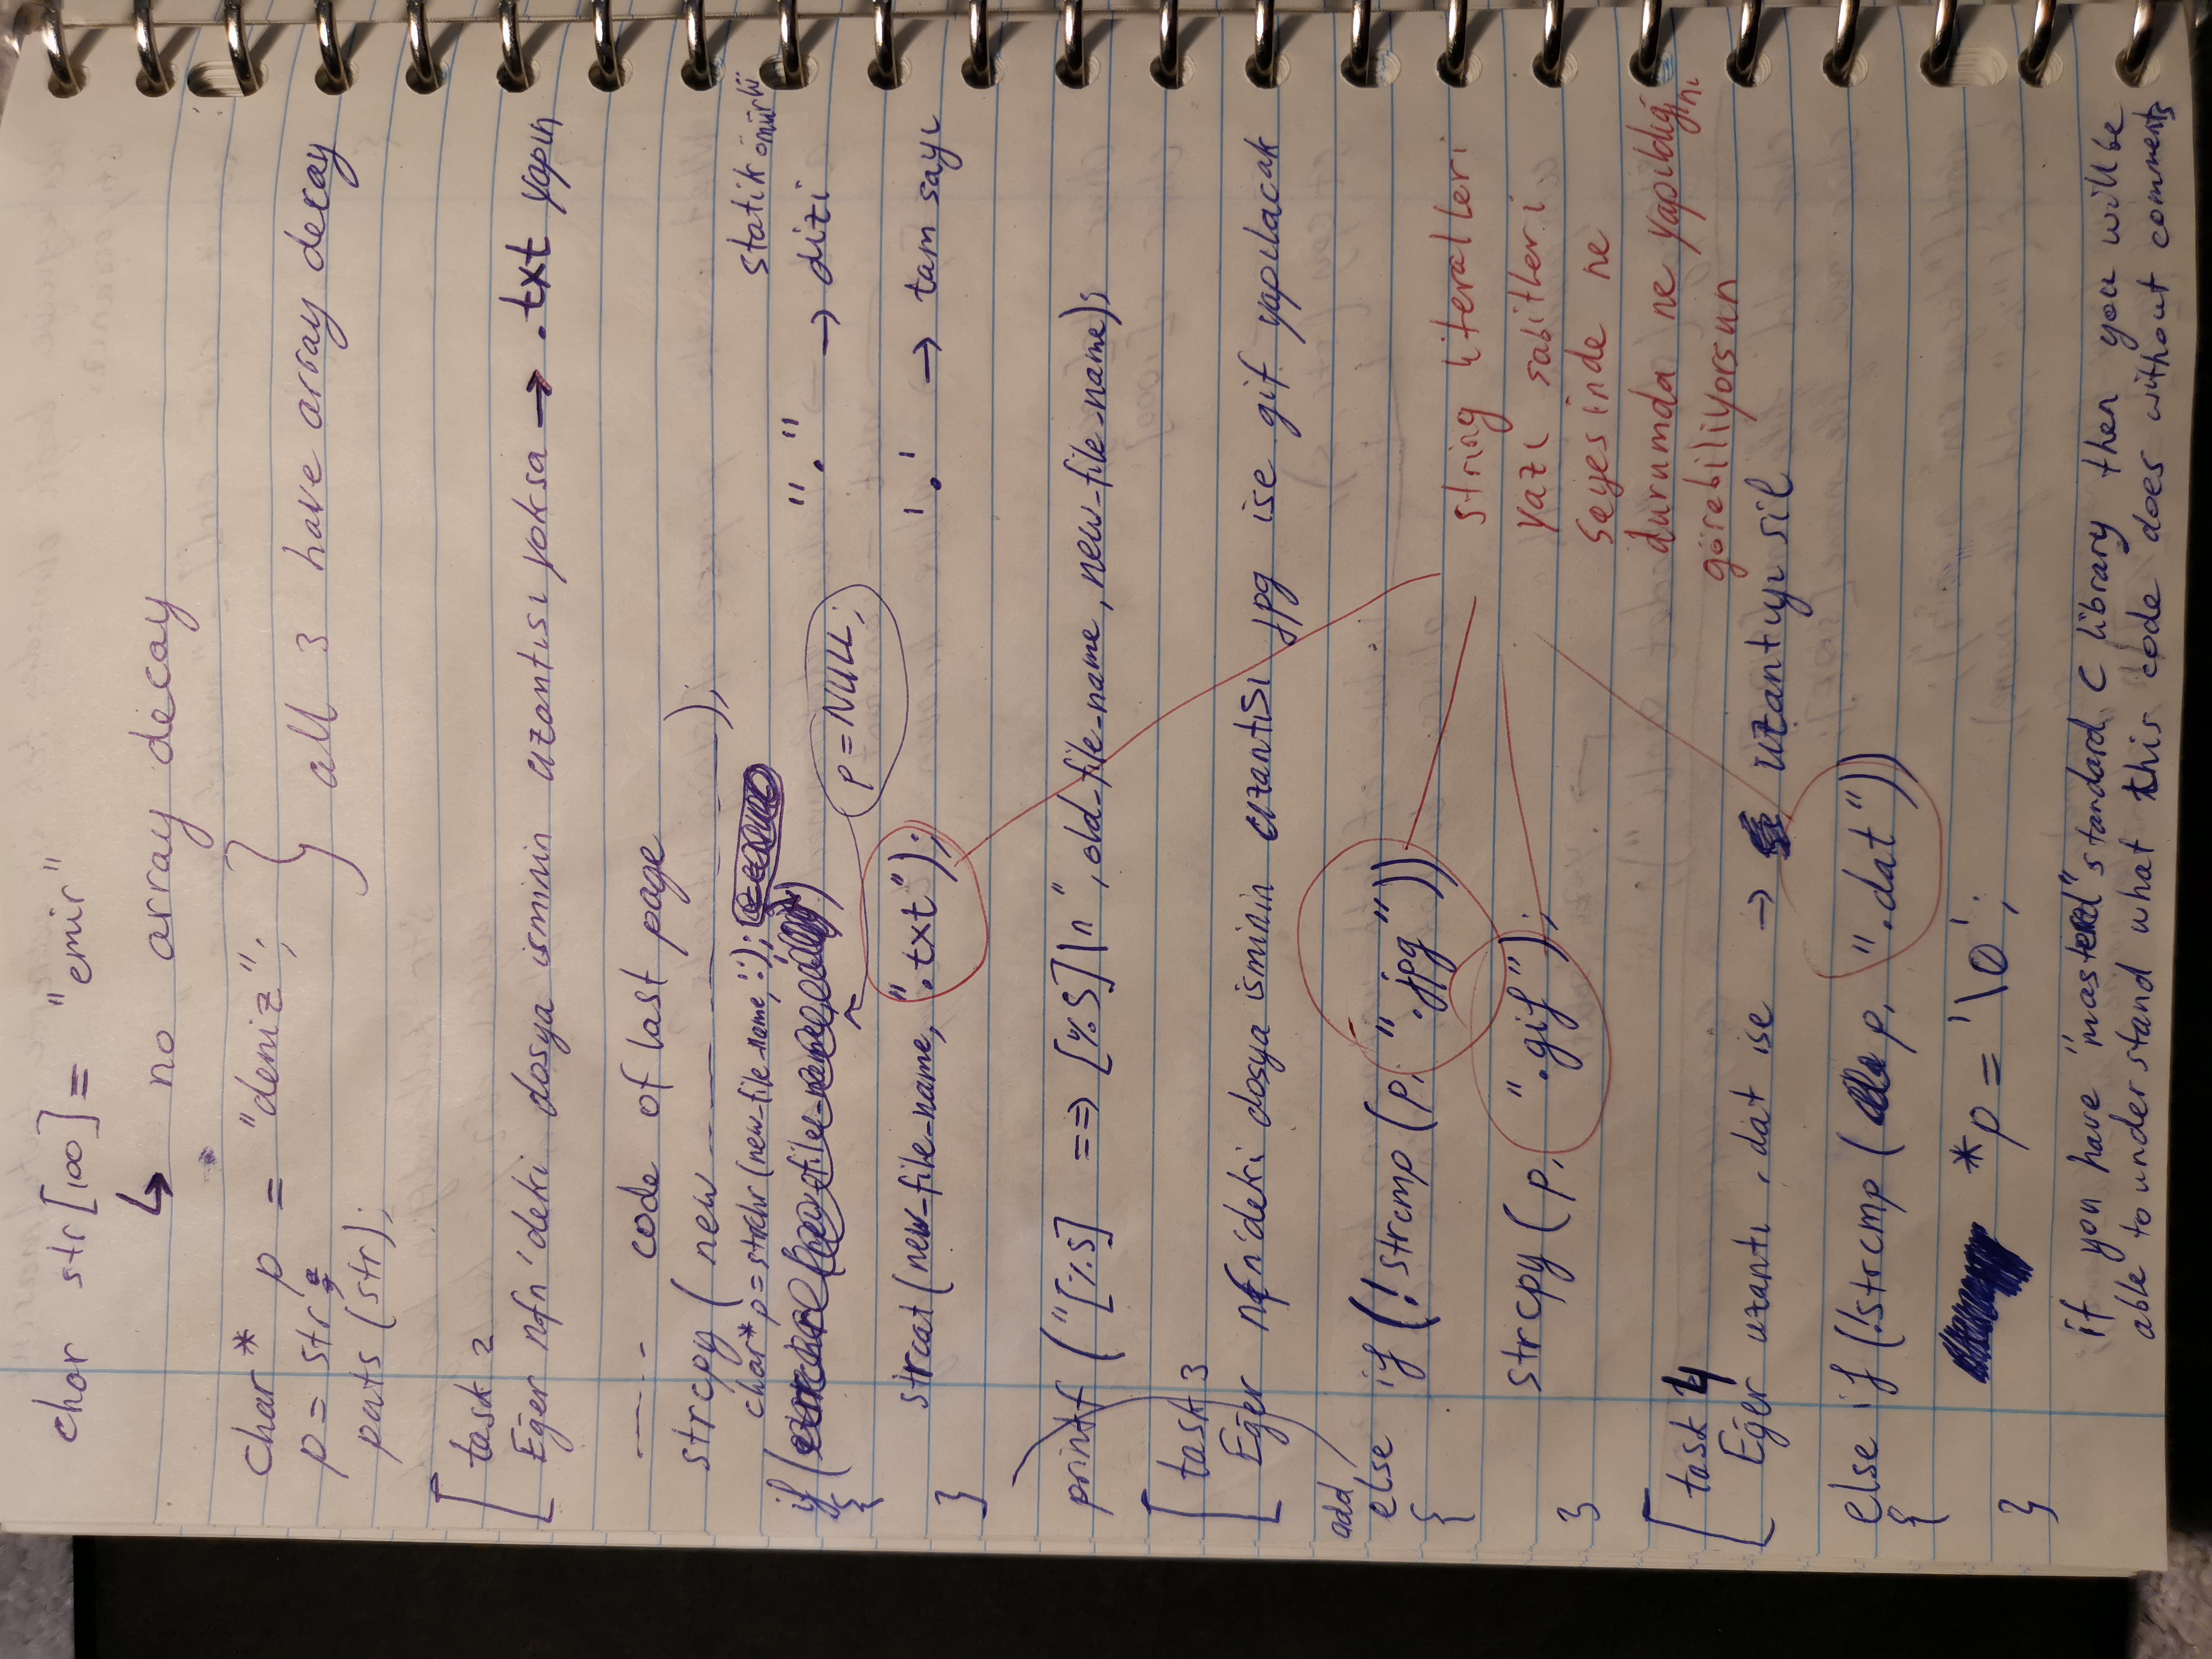 char str[100] = "emir"
↳ no array decay
char* p = "deniz";
p = str;
puts (str);
} all 3 have array decay
task 2
Eğer nfn'deki dosya isminin uzantısı yoksa → .txt yapın
---- code of last page
strcpy ( new — — — — — );
char* p = strchr (new_file_name, '.');
if ( )
p = NULL;
{
strcat (new_file_name, ".txt");
}
statik ömürlü
"." → dizi
'.' → tam sayı
printf ("[%s] ==> [%s]\n", old_file_name, new_file_name);
task 3
Eğer nfn'deki dosya isminin uzantısı jpg ise gif yapılacak
add
else if (!strcmp (p, ".jpg"))
{
strcpy (p, ".gif");
}
string literalleri
yazı sabitleri
sayesinde ne
durumda ne yapıldığını
görebiliyorsun
task 4
Eğer uzantı .dat ise → uzantıyı sil
else if (!strcmp ( p, ".dat"))
{
*p = '\0';
}
if you have "mastered" standard C library then you will be
able to understand what this code does without comments